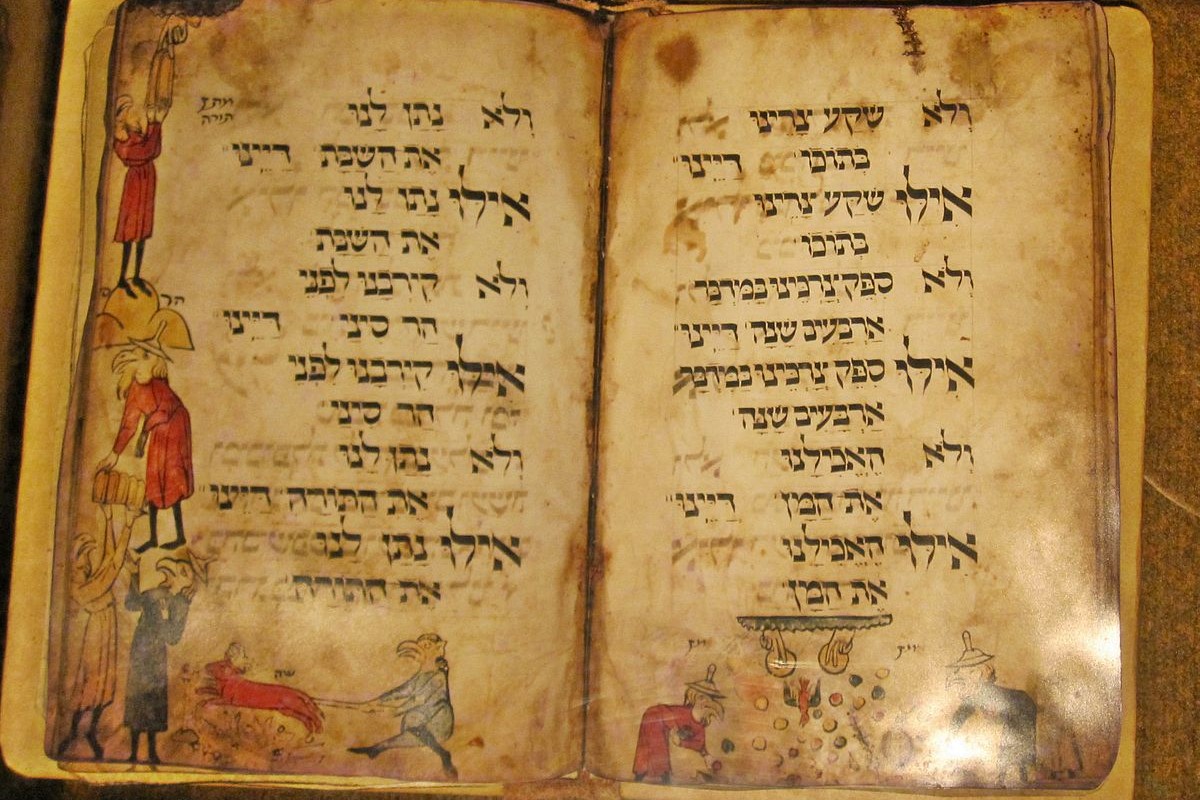 ולא שקע צרינו
בתוכו דיינו
אילו שקע צרינו
בתוכו
ולא ספק צרכינו במדבר
ארבעים שנה דיינו
אילו ספק צרכינו במדבר
ארבעים שנה
ולא האכילנו
את המן דיינו
אילו האכילנו
את המן
ולא נתן לנו
את השבת דיינו
אילו נתן לנו
את השבת
ולא קירבנו לפני
הר סיני דיינו
אילו קירבנו לפני
הר סיני
ולא נתן לנו
את התורה דיינו
אילו נתן לנו
את התורה
תורה
הר
שה